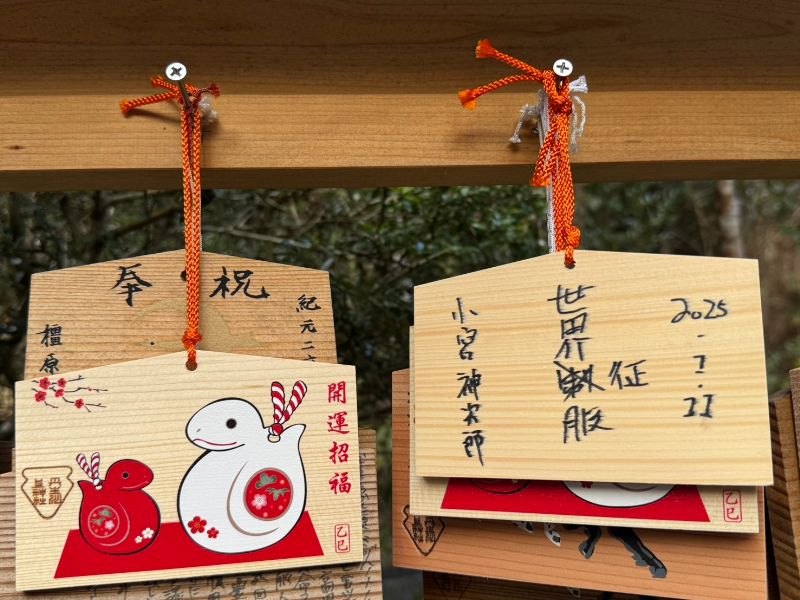 奉祝
紀元二
橿原
開運招福
乙巳
丹生川
上神社
2025.1.11
世界征服
小宮神次郎
乙巳